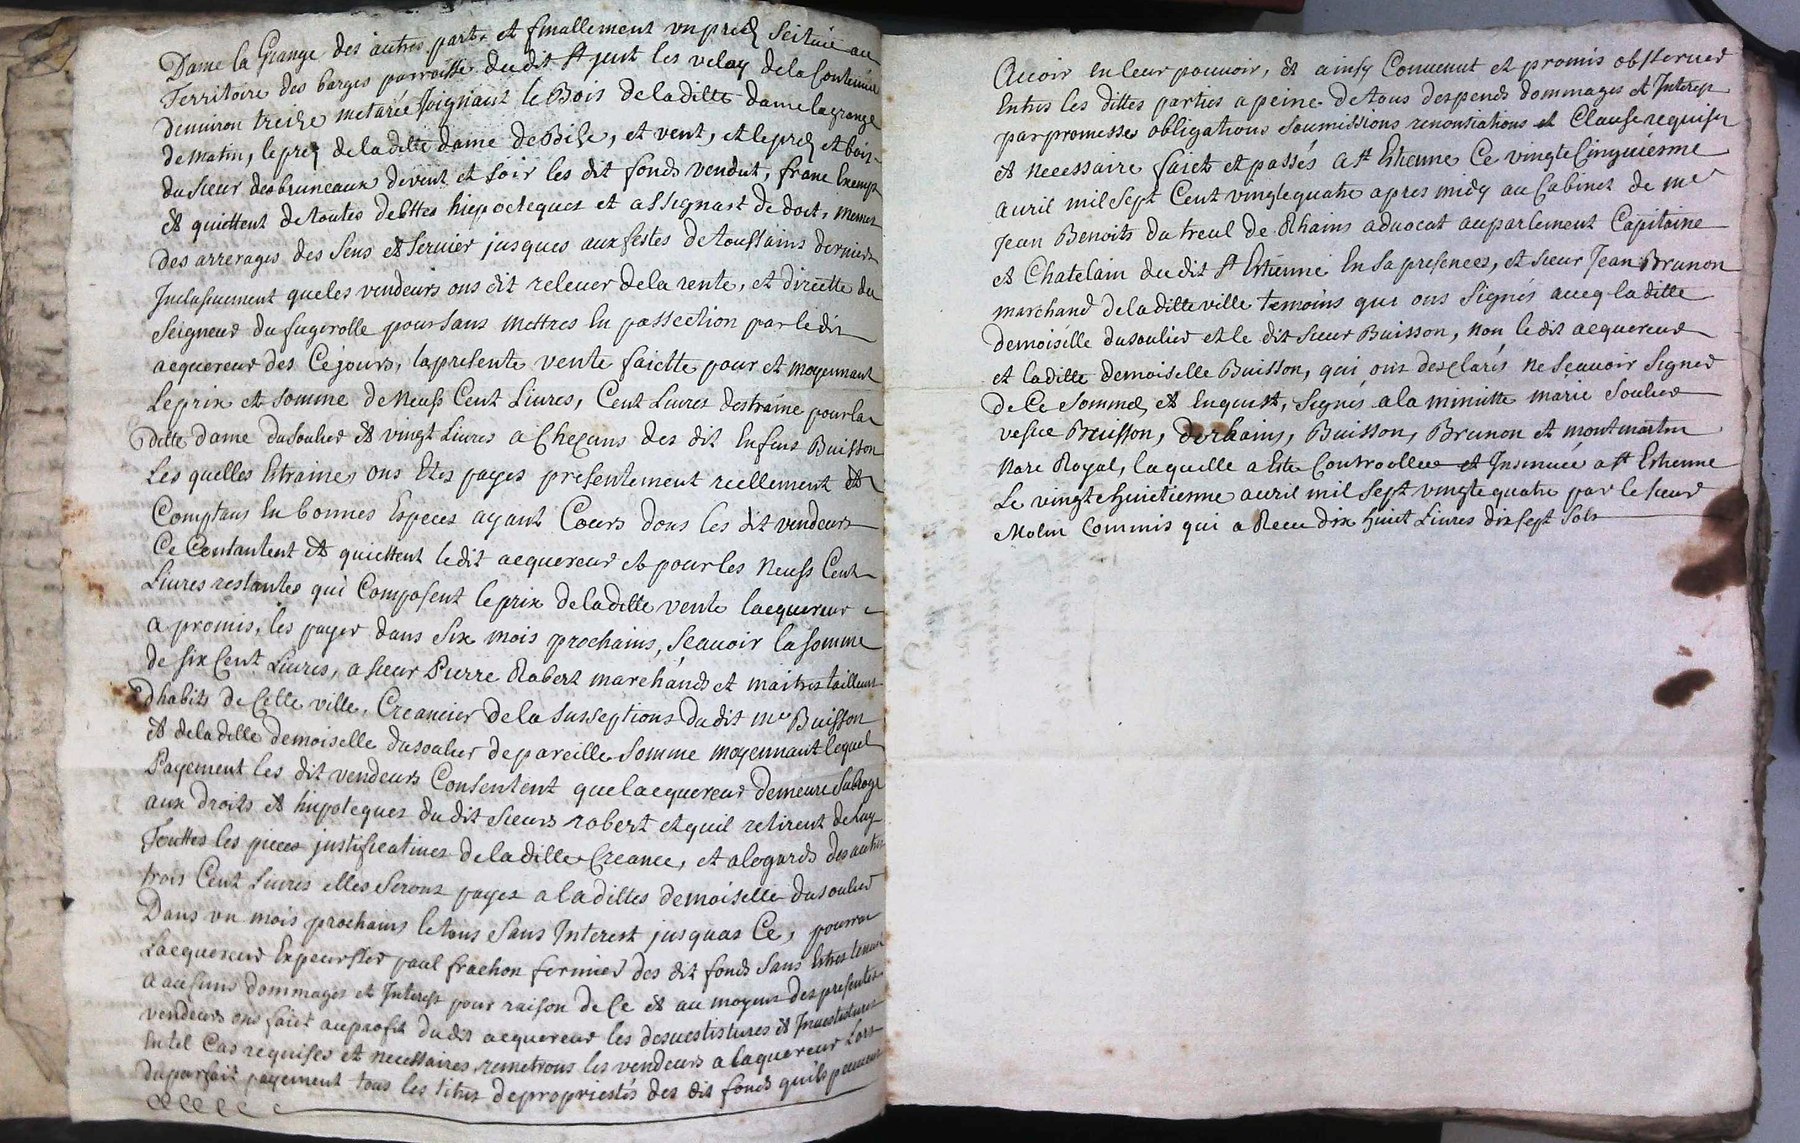 Dame la Grange des autres part. et finallement un preds scituée au
Territoire des barges parroisse du dit St just les velay de la Contenue
denuiron treize metarée Joignant le Bois de la ditte dame la grange
de matin, le pred de la ditte dame de Bize, et vent, et le pred et bois
du sieur desbruneaux de vent et soir les dit fonds vendut, franc Exempt
et quiettent de toutes debttes hiepocteques et assignast de dost, mesmes
des arrerages des sens et servier jusques aux festes de toussains dernier
Inclusiuement que les vendeurs ons dit releuer de la rente, et dirette du
Seigneur du fugerolle pour sans mettres En possection par le dit
acquereur des Ce jours, la presente vente faictte pour et moyennant
Le prix et somme de Neufs Cent Livres, Cent Livres destraine pour la
ditte dame du soulier et vingt Livres a Cheçuns des dit Enfens Buisson
Les quelles Etraines ons Etes payes presentement reellement et
Comptans En bonnes Especes ayant Cours dons les dit vendeurs
Ce Contantent et quiettent le dit acquereur et pour les Neufs Cent
Livres restantes qui Composent le prix de la ditte vente lacquereur
a promis, les payer dans six mois prochains, scauoir la somme
de six Cent Livres, a sieur Pierre Robert marchands et maitres tailleur
dhabits de Cette ville, Creancier de la susseptions du dit me Buisson
et de la ditte demoiselle du soulier de pareille somme moyennant lequel
Payement les dit vendeurs Consentent que lacquereur demeure subrogé
aux droits et hipoteques du dit sieurs robert et quil retirent de luy
Touttes les pieces justificatiues de la ditte Creance, et alegards des autres
trois Cent Livres elles seront payes a la dittes demoiselle du soulier
Dans un mois prochains le tous sans Interest jusquas Ce, pourra
Lacquereur Expeurster paul frachon fermier des dit fonds sans Estres tenu
a aucuns dommages et Interest pour raison de Ce et au moyens des presentes
vendeurs ons faict au profit du dit acquereur les desuestistures et Inuestistures
En tel Cas requises et necessaires, remetrons les vendeurs a lacquereur Lors
du parfait payement tous les titres de propriestés des dit fonds quils peuuent
Avoir En leur pouvoir, et ainsy Conuenut et promis obsseruer
Entres les dittes parties a peine de tous despends dommages et Interest
par promesses obligations soumissions renontiations et Clause requises
et necessaire faict et passés a St Etienne Ce vingte Cinquiesme
auril mil sept Cent vingte quatre apres midy au Cabinet de me
Jean Benoits du treul de Rhains aduocat au parlement Capitaine
et Chatelain du dit St Estienne En sa presences, et sieur Jean Brunon
marchand de la ditte ville temoins qui ons signés aueq la ditte
demoiselle du soulier et le dit sieur Buisson, non le dit acquereur
et la ditte demoiselle Buisson, qui ons desclarés ne scauoir signer
de Ce sommes et Enquist, signés a la minutte marie soulier
vesue Buisson, derhains, Buisson, Brunon et montmartin
Nore Royal, laquelle a Este Controollee et Insinuée a St Estienne
Le vingte huictienne auril mil sept vingte quatre par le sieur
Molin Commis qui a Receu dix huict Livres dix sept sols